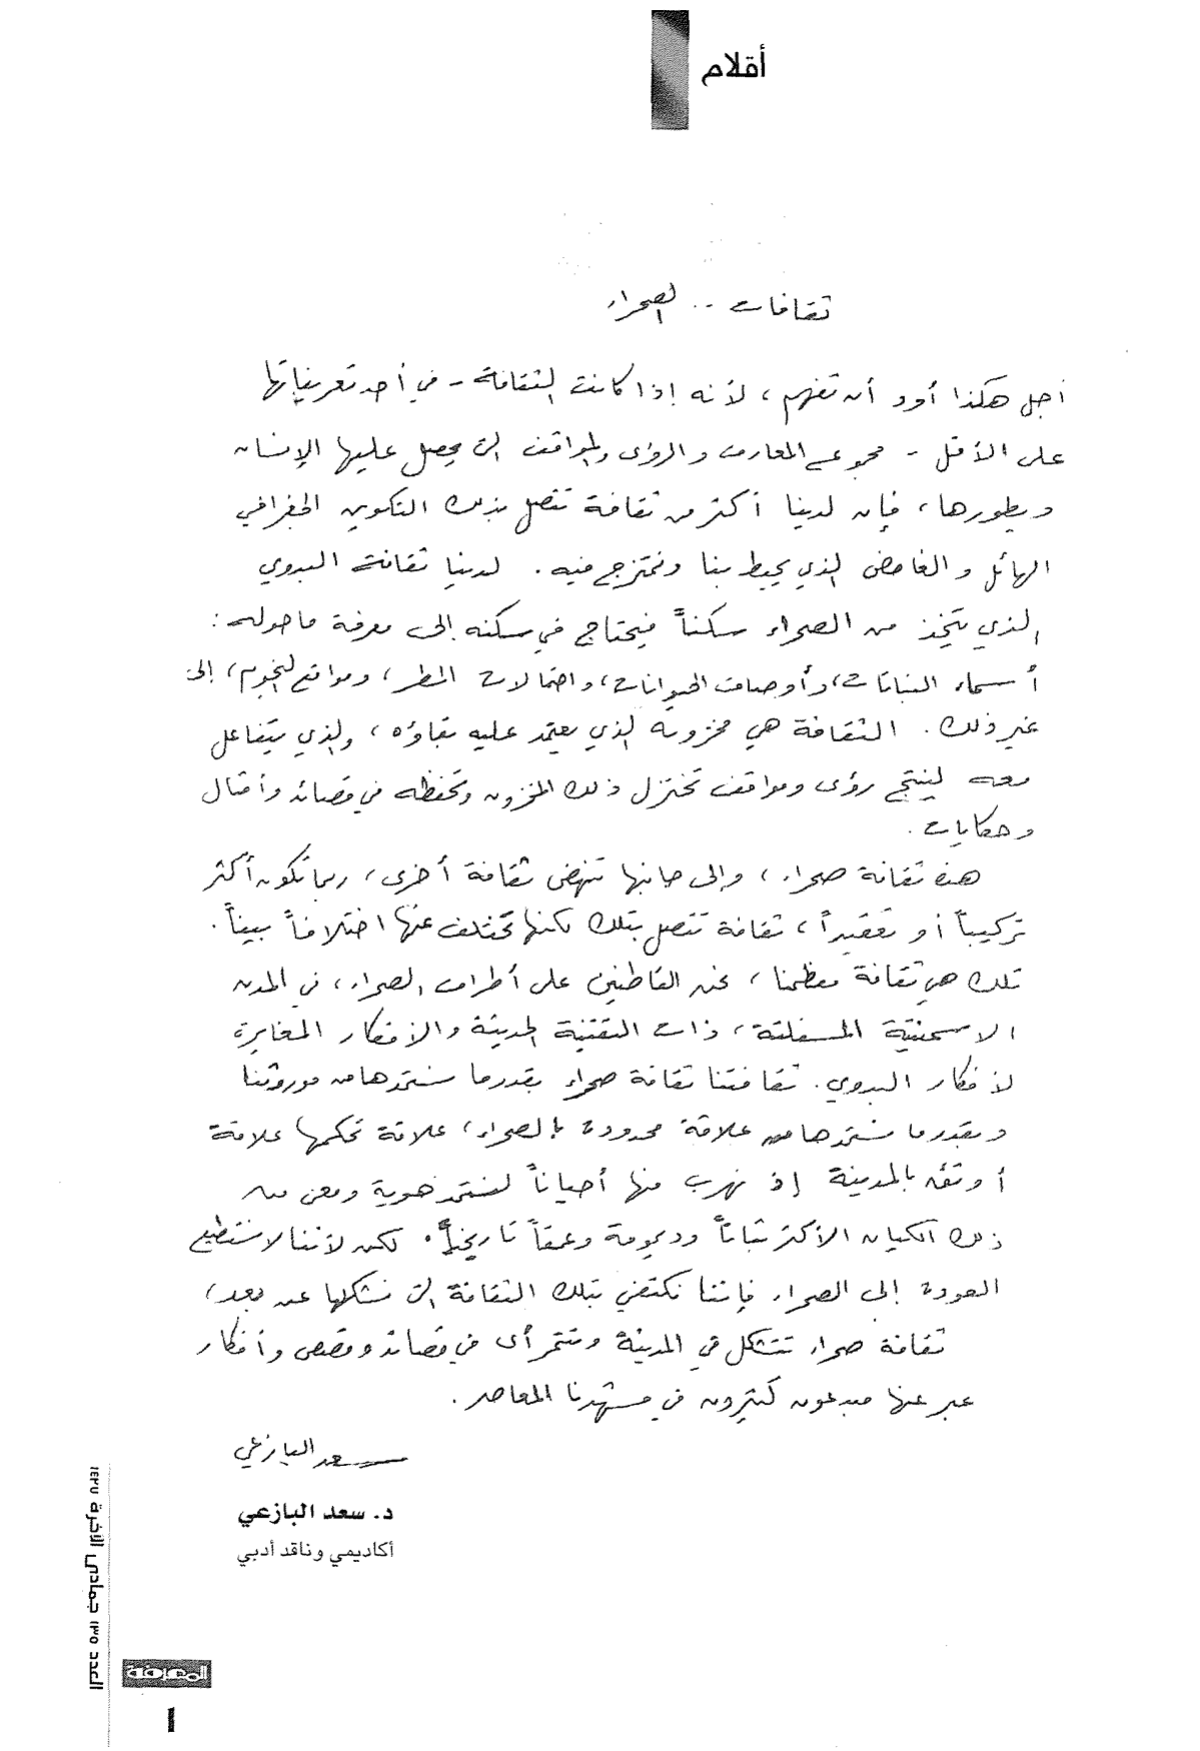 أقلام
ثقافات .. الصحراء
أجل هكذا أود أن تفهم، لأنه إذا كانت الثقافة - في أحد تعريفاتها
على الأقل - مجموعة المعارف والرؤى والمواقف التي يحصل عليها الإنسان
ويطورها، فإن لدينا أكثر من ثقافة تتصل بذلك التكوين الجغرافي
الهائل والغامض الذي يحيط بنا ونمتزج فيه. لدينا ثقافة البدوي
الذي يتخذ من الصحراء سكناً فيحتاج في سكنه إلى معرفة ما حوله:
أسماء النباتات، وأوصاف الحيوانات، واحتمالات المطر، ومواقع النجوم، إلى
غير ذلك. الثقافة هي مخزونه الذي يعتمد عليه بقاؤه، والذي يتفاعل
معه لينتج رؤى ومواقف تختزل ذلك المخزون وتحفظه في قصائد وأمثال
وحكايات.
هذه ثقافة صحراء، وإلى جانبها تنهض ثقافة أخرى، ربما تكون أكثر
تركيباً أو تعقيداً، ثقافة تتصل بتلك لكنها تختلف عنها اختلافاً بيناً.
تلك هي ثقافة معظمنا، نحن القاطنين على أطراف الصحراء، في المدن
الاسمنتية المسفلتة، ذات التقنية الحديثة والأفكار المغايرة
لأفكار البدوي. ثقافتنا ثقافة صحراء بقدر ما نستمدها من موروثنا
وبقدر ما نستمدها من علاقة محدودة بالصحراء، علاقة تحكمها علاقة
أوثق بالمدينة إذ نهرب منها أحياناً لنستمد هوية ومعنى من
ذلك الكيان الأكثر ثباتاً وديمومة وعمقاً تاريخياً. لكن لأننا لا نستطيع
العودة إلى الصحراء فإننا نكتفي بتلك الثقافة التي نشكلها عن بعد،
ثقافة صحراء تتشكل في المدينة وتتمرأى في قصائد وقصص وأفكار
عبر عنها مبدعون كثيرون في مشهدنا المعاصر.
سعد البازعي
د. سعد البازعي
أكاديمي وناقد أدبي
العدد ١٣٥ جمادى الآخرة ١٤٢٧
المعرفة
١